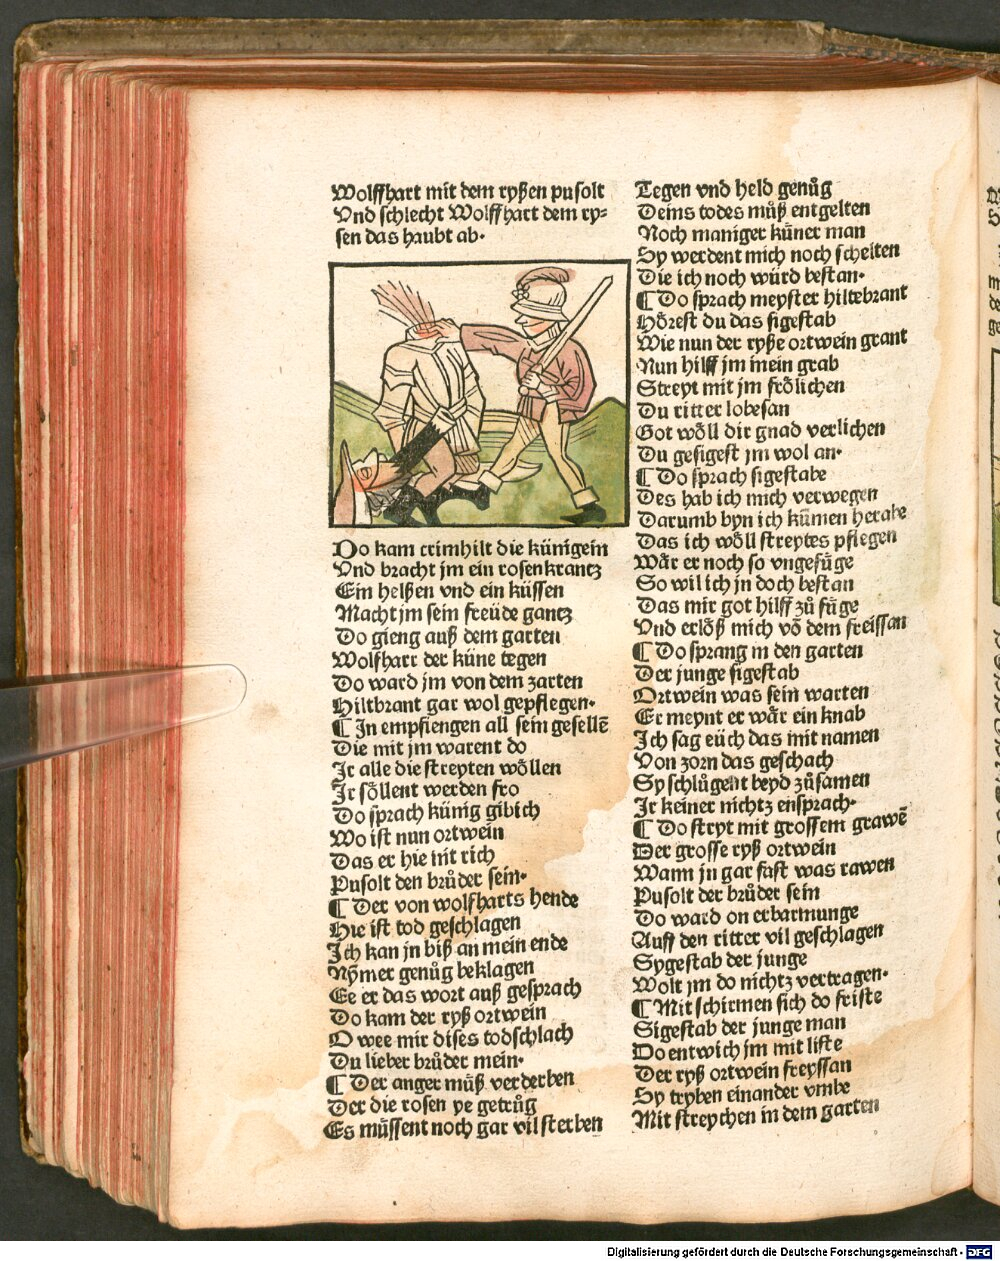 Wolffhart mit dem ryßen pusolt
Vnd schlecht Wolffhart dem ry⸗
sen das haubt ab.
Do kam crimhilt die künigein
Vnd bracht jm ein rosenkrantz
Ein helßen vnd ein küssen
Macht jm sein freüde gantz
Do gieng auß dem garten
Wolfhart der küne tegen
Do ward jm von dem zarten
Hiltbrant gar wol gepflegen.
¶ In empfiengen all sein gesellē
Die mit jm warent do
Ir alle die streyten wöllen
Ir söllent werden fro
Do sprach künig gibich
Wo ist nun ortwein
Das er hie nit rich
Pusolt den brůder sein.
¶ Der von wolfharts hende
Hie ist tod geschlagen
Ich kan jn biß an mein ende
Nymer genůg beklagen
Ee er das wort auß gesprach
Do kam der ryß ortwein
O wee mir dises todschlach
Du lieber brůder mein.
¶ Der anger můß verderben
Der die rosen ye getrůg
Es müssent noch gar vil sterben
Tegen vnd held genůg
Deins todes můß entgelten
Noch maniger küner man
Sy werdent mich noch schelten
Die ich noch würd bestan.
¶ Do sprach meyster hiltebrant
Hörest du das sigestab
Wie nun der ryße ortwein grant
Nun hilff jm in ein grab
Streyt mit jm frölichen
Du ritter lobesan
Got wöll dir gnad verlichen
Du gesigest jm wol an.
¶ Do sprach sigestabe
Des hab ich mich verwegen
Darumb byn ich kümen herabe
Das ich wöll streytes pflegen
Wär er noch so vngefüge
So wil ich jn doch bestan
Das mir got hilff zů füge
Vnd erlöß mich vō dem freissan
¶ Do sprang in den garten
Der junge sigestab
Ortwein was sein warten
Er meynt er wär ein knab
Ich sag eüch das mit namen
Von zorn das geschach
Sy schlůgent beyd zůsamen
Ir keiner nichtz ensprach.
¶ Do stryt mit grossem grawē
Der grosse ryß ortwein
Wann jn gar fast was rawen
Pusolt der brůder sein
Do ward on erbarmunge
Auff den ritter vil geschlagen
Sygestab der junge
Wolt jm do nichtz vertragen.
¶ Mit schirmen sich do friste
Sigestab der junge man
Do entwich jm mit liste
Der ryß ortwein freyssan
Sy tryben einander vmbe
Mit streychen in dem garten
Digitalisierung gefördert durch die Deutsche Forschungsgemeinschaft - DFG